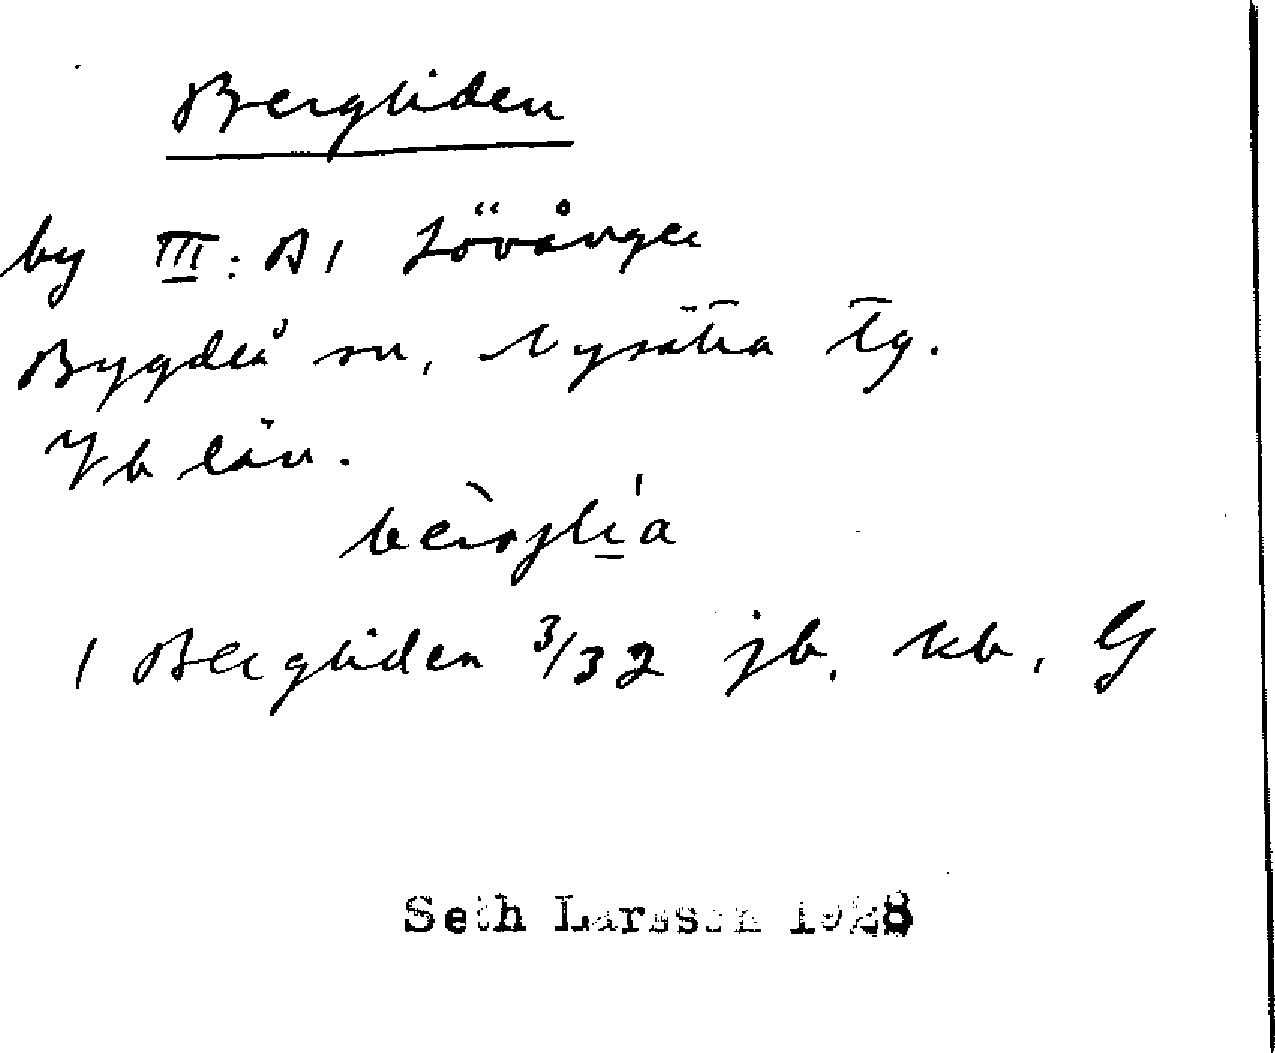 Bergliden
by III: A1 Lövånger
Bygdeå sn, Nysätra tg.
Vb län.
1 Bergliden 3/32 jb, kb, G
Seth Larsson 1928